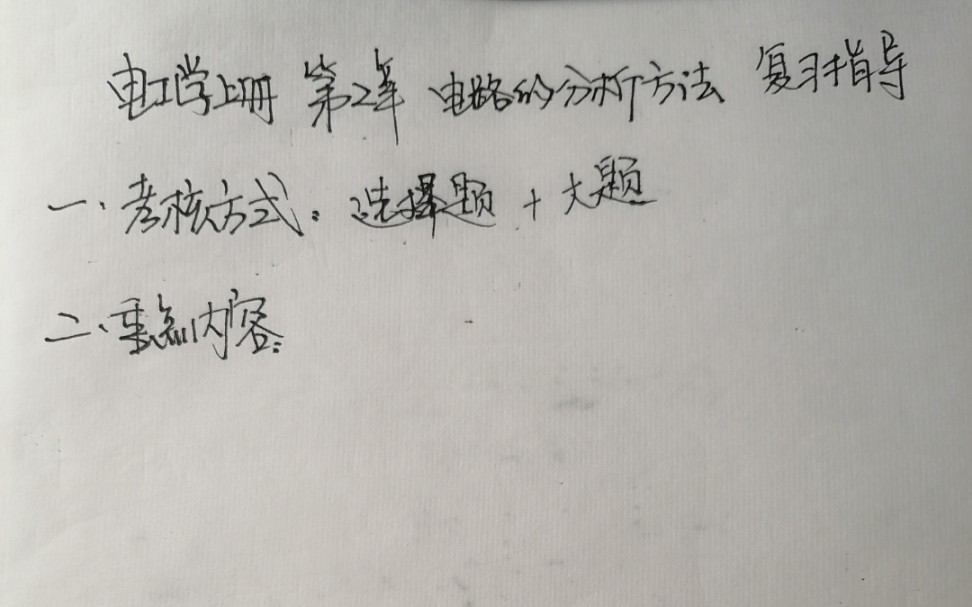 电工学上册 第2章 电路的分析方法 复习指导
一、考核方式：选择题 + 大题
二、重点内容：